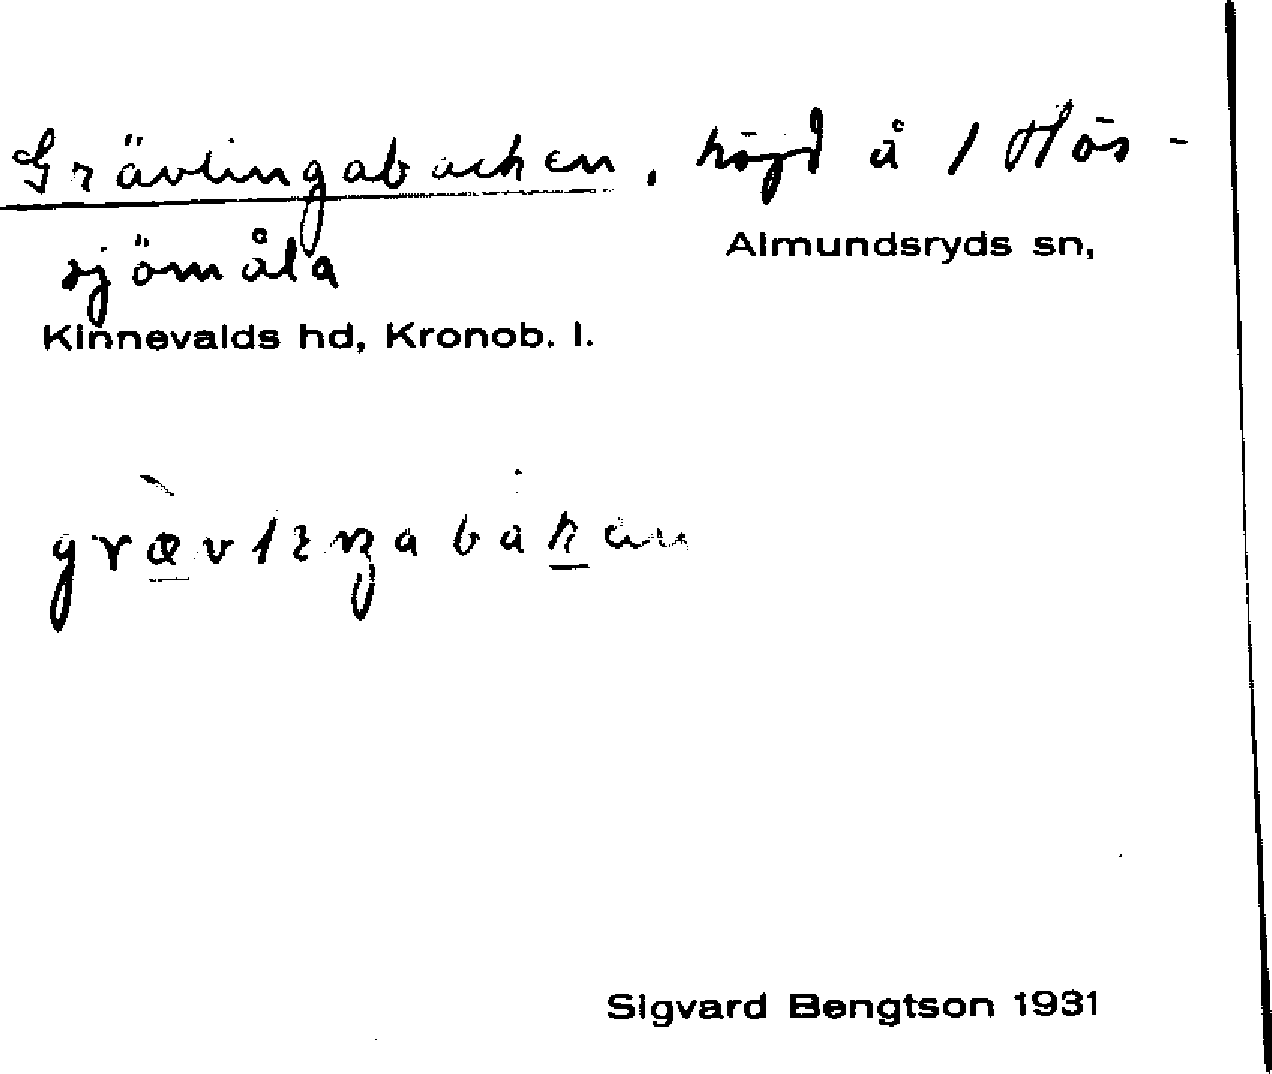 Grävlingabacken, höjd å 1 Hös-
sjömåla
Almundsryds sn,
Kinnevalds hd, Kronob. l.
Sigvard Bengtson 1931